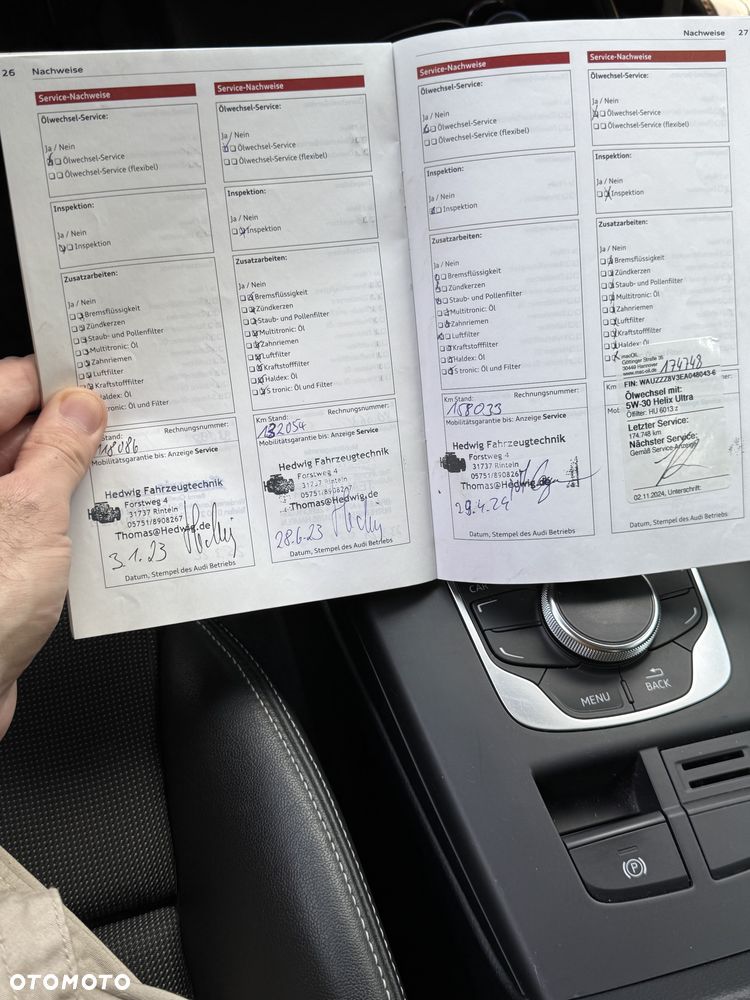 26 Nachweise
Service-Nachweise
Ölwechsel-Service:
Ja / Nein
Ölwechsel-Service
Ölwechsel-Service (flexibel)
Inspektion:
Ja / Nein
Inspektion
Zusatzarbeiten:
Ja / Nein
Bremsflüssigkeit
Zündkerzen
Staub- und Pollenfilter
Multitronic: Öl
Zahnriemen
Luftfilter
Kraftstofffilter
Haldex: Öl
tronic: Öl und Filter
Stand: Rechnungsnummer:
118086
Mobilitätsgarantie bis: Anzeige Service
Hedwig Fahrzeugtechnik
Forstweg 4
31737 Rinteln
05751/8908267
Thomas@Hedwig.de
3.1.23
Datum, Stempel des Audi Betriebs
Service-Nachweise
Ölwechsel-Service:
Ja / Nein
Ölwechsel-Service
Ölwechsel-Service (flexibel)
Inspektion:
Ja / Nein
Inspektion
Zusatzarbeiten:
Ja / Nein
Bremsflüssigkeit
Zündkerzen
Staub- und Pollenfilter
Multitronic: Öl
Zahnriemen
Luftfilter
Kraftstofffilter
Haldex: Öl
S tronic: Öl und Filter
Km Stand: Rechnungsnummer:
132054
Mobilitätsgarantie bis: Anzeige Service
Hedwig Fahrzeugtechnik
Forstweg 4
31737 Rinteln
05751/8908267
Thomas@Hedwig.de
28.6.23
Datum, Stempel des Audi Betriebs
Nachweise 27
Service-Nachweise
Ölwechsel-Service:
Ja / Nein
Ölwechsel-Service
Ölwechsel-Service (flexibel)
Inspektion:
Ja / Nein
Inspektion
Zusatzarbeiten:
Ja / Nein
Bremsflüssigkeit
Zündkerzen
Staub- und Pollenfilter
Multitronic: Öl
Zahnriemen
Luftfilter
Kraftstofffilter
Haldex: Öl
S tronic: Öl und Filter
Km Stand: Rechnungsnummer:
158033
Mobilitätsgarantie bis: Anzeige Service
Hedwig Fahrzeugtechnik
Forstweg 4
31737 Rinteln
05751/8908267
Thomas@Hedwig.de
29.4.24
Datum, Stempel des Audi Betriebs
Service-Nachweise
Ölwechsel-Service:
Ja / Nein
Ölwechsel-Service
Ölwechsel-Service (flexibel)
Inspektion:
Ja / Nein
Inspektion
Zusatzarbeiten:
Ja / Nein
Bremsflüssigkeit
Zündkerzen
Staub- und Pollenfilter
Multitronic: Öl
Zahnriemen
Luftfilter
Kraftstofffilter
Haldex: Öl
macOIL
Göttinger Straße 35
30449 Hannover
www.mac-oil.de
174748
FIN: WAUZZZ8V3EA048043-6
Ölwechsel mit:
5W-30 Helix Ultra
Ölfilter: HU 6013 z
Letzter Service:
174.748 km
Nächster Service:
Gemäß Service-Anzeige
02.11.2024, Unterschrift:
Datum, Stempel des Audi Betriebs
CAR
MENU
BACK
P
OTOMOTO